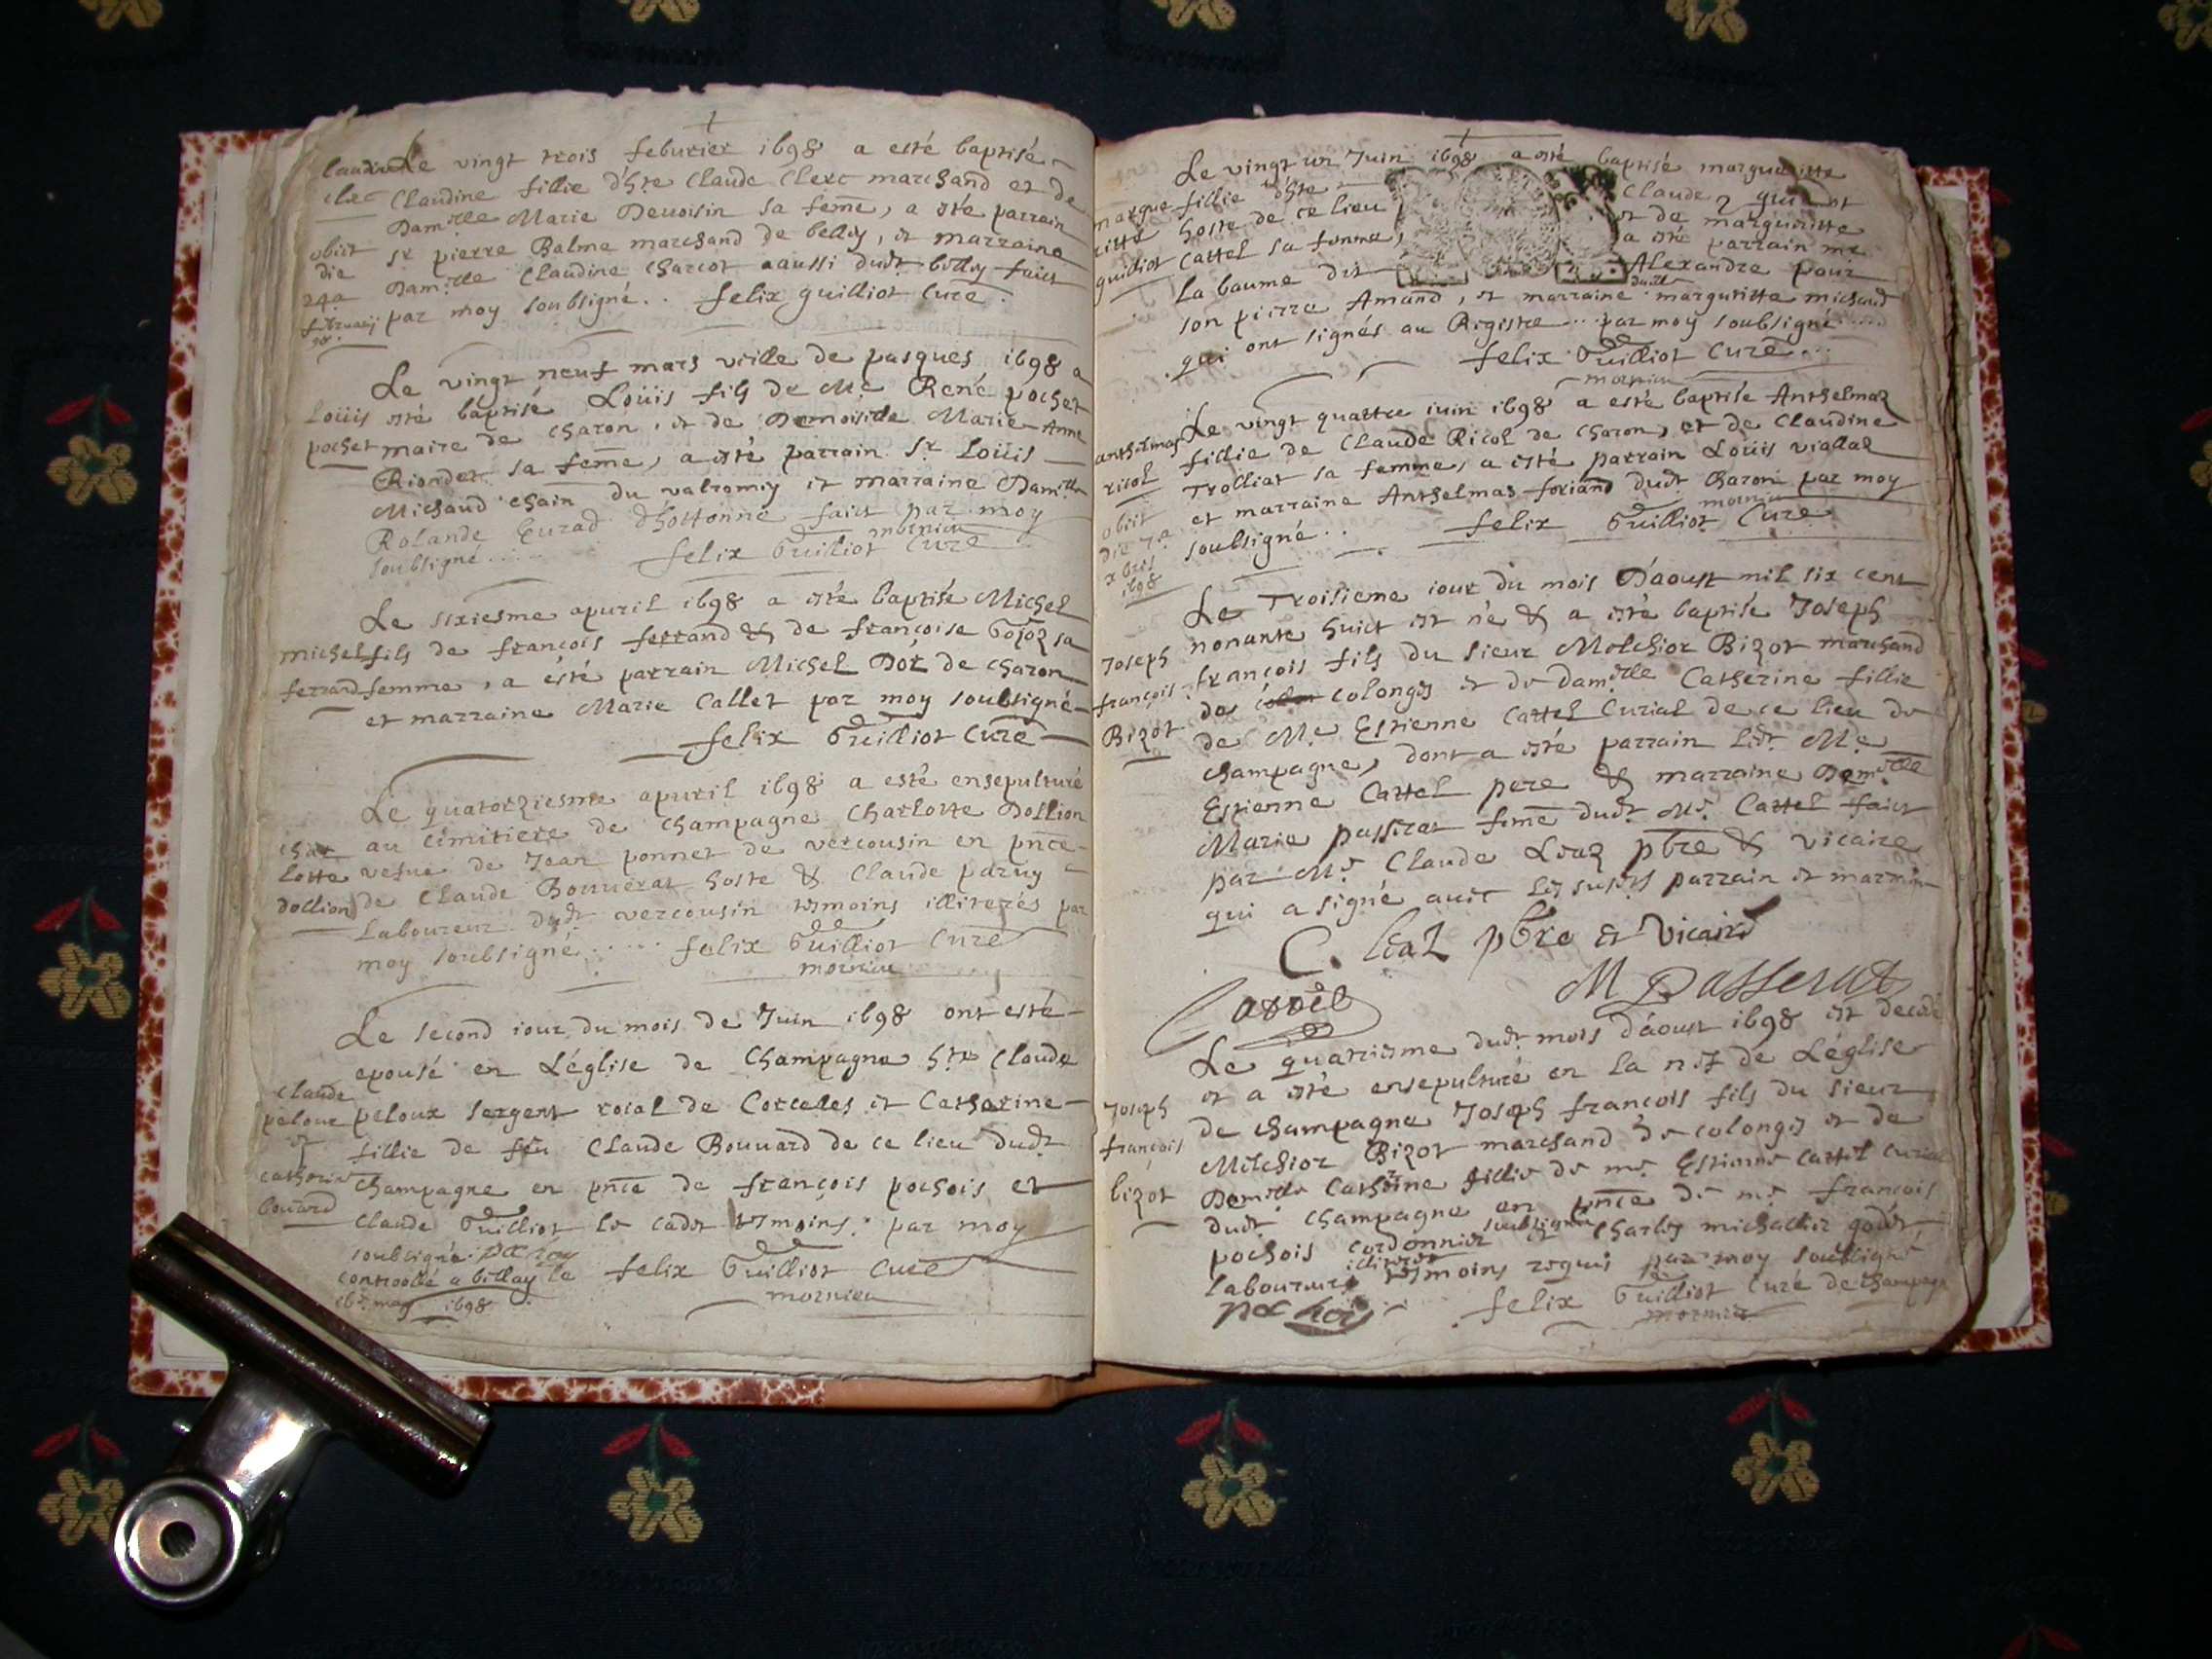 Le vingt trois feburier 1698 a esté baptisé
clerc Claudine fillie d'hte Claude Clerc marchand et de
Damlle Marie Deuoisin sa feme, a este parrain
obiit sr pierre Balme marchand de belley, et marraine
die Damlle Claudine Charcot aussi dudt belley faict
24a
februarij par moy soubsigné.. felix guilliot Curé.
98.
Le vingt neuf mars veille de pasques 1698 a
Loüis esté baptisé Loüis fils de Me René pochet
pochet maire de Charon, et de Demoiselle Marie Anne
Riondet sa feme, a esté parrain Sr Loüis
Michaud Chain du valromey et marraine Damlle
Rolande d'hottonne faict par moy
soubsigné..... felix Guilliot Curé
mornieu
Le sixiesme apuril 1698 a esté baptisé Michel
michel fils de françois ferrand & de françoise Gojoz sa
ferrand femme, a ésté parrain Michel Dor de charon
et marraine Marie Callet par moy soubsigné
felix Guilliot Curé
Le quatorziesme apuril 1698 a esté ensepulturé
char au cimitiere de Champagne Charlotte Dollion
lotte vefue de Jean ponnet de vercousin en pnce
dollion de Claude Bouuerat hoste & Claude paruy
Laboureur dudt vercousin temoins illiterés par
moy soubsigné..... felix Guilliot Curé
mornieu
Le second iour du mois de Juin 1698 ont esté
epousé en L'église de Champagne hte Claude
Claude
peloux peloux sergent roial de Corcelles et Catherine
et fillie de feu Claude Bouuard de ce lieu dudt
catherine Champagne en pnce de françois pochois et
bouard Claude Guilliot le cadet temoins par moy
soubsigné.
controollé a billay le felix Guilliot Curé
may 1698 mornieu
Le vingt un Juin 1698 a esté baptisé margueritte
margue fillie d'hte Claude guilliot
ritte hoste de ce lieu et de margueritte
guilliot Cattel sa femme, a esté parrain me
La baume dit Alexandre pour
son pierre Amand, et marraine damlle margueritte michaud
qui ont signés au Registre... par moy soubsigné....
felix Guilliot Curé...
mornieu
Le vingt quattre iuin 1698 a esté baptisé Anthelmaz
anthelmaz fillie de Claude Ricol de Charon, et de Claudine
ricol Trolliat sa femme, a esté parrain Loüis viallaz
obiit et marraine Anthelmas foriand dudt Charon par moy
die 7a soubsigné.. felix Guilliot Curé
xbris mornieu
1698
Le Troisieme iour du mois D'aoust mil six cent
nonante huict est né & a esté baptisé Joseph
Joseph françois fils du sieur Melchior Bizot marchand
françois de colonges et de Damlle Catherine fillie
Bizot de Me Estienne Cattel Curial de ce lieu de
Champagne, dont a esté parrain ledt Me
Estienne Cattel pere & marraine Demlle
Marie passerat feme dudt Me Cattel faict
par Me Claude Leaz pbre & vicaire
qui a signé auec les susdts parrain et marraine
C. leaz pbre et vicaire
M passerat
Cattel
Le quatriesme dudt mois d'aoust 1698 est decedé
et a esté ensepulturé en la nef de L'église
Joseph de champagne Joseph françois fils du sieur
françois Melchior Bizot marchand de colonges et de
bizot Demlle Catherine fillie de me Estienne Cattel curial
dudt champagne en pnce de me françois
pochois cordonnier soubsigné et Charles michallier godet
laboureurs illiteré temoins requis par moy soubsigné
pochois felix Guilliot Curé de Champagne
mornieu